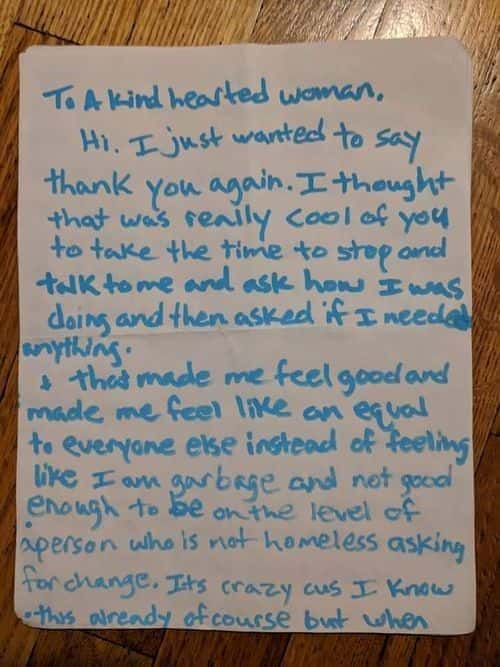 To A kind hearted woman.
Hi. I just wanted to say
thank you again. I thought
that was really cool of you
to take the time to stop and
talk to me and ask how I was
doing and then asked if I needed
anything.
& that made me feel good and
made me feel like an equal
to everyone else instead of feeling
like I am garbage and not good
enough to be on the level of
a person who is not homeless asking
for change. Its crazy cus I know
this already of course but when